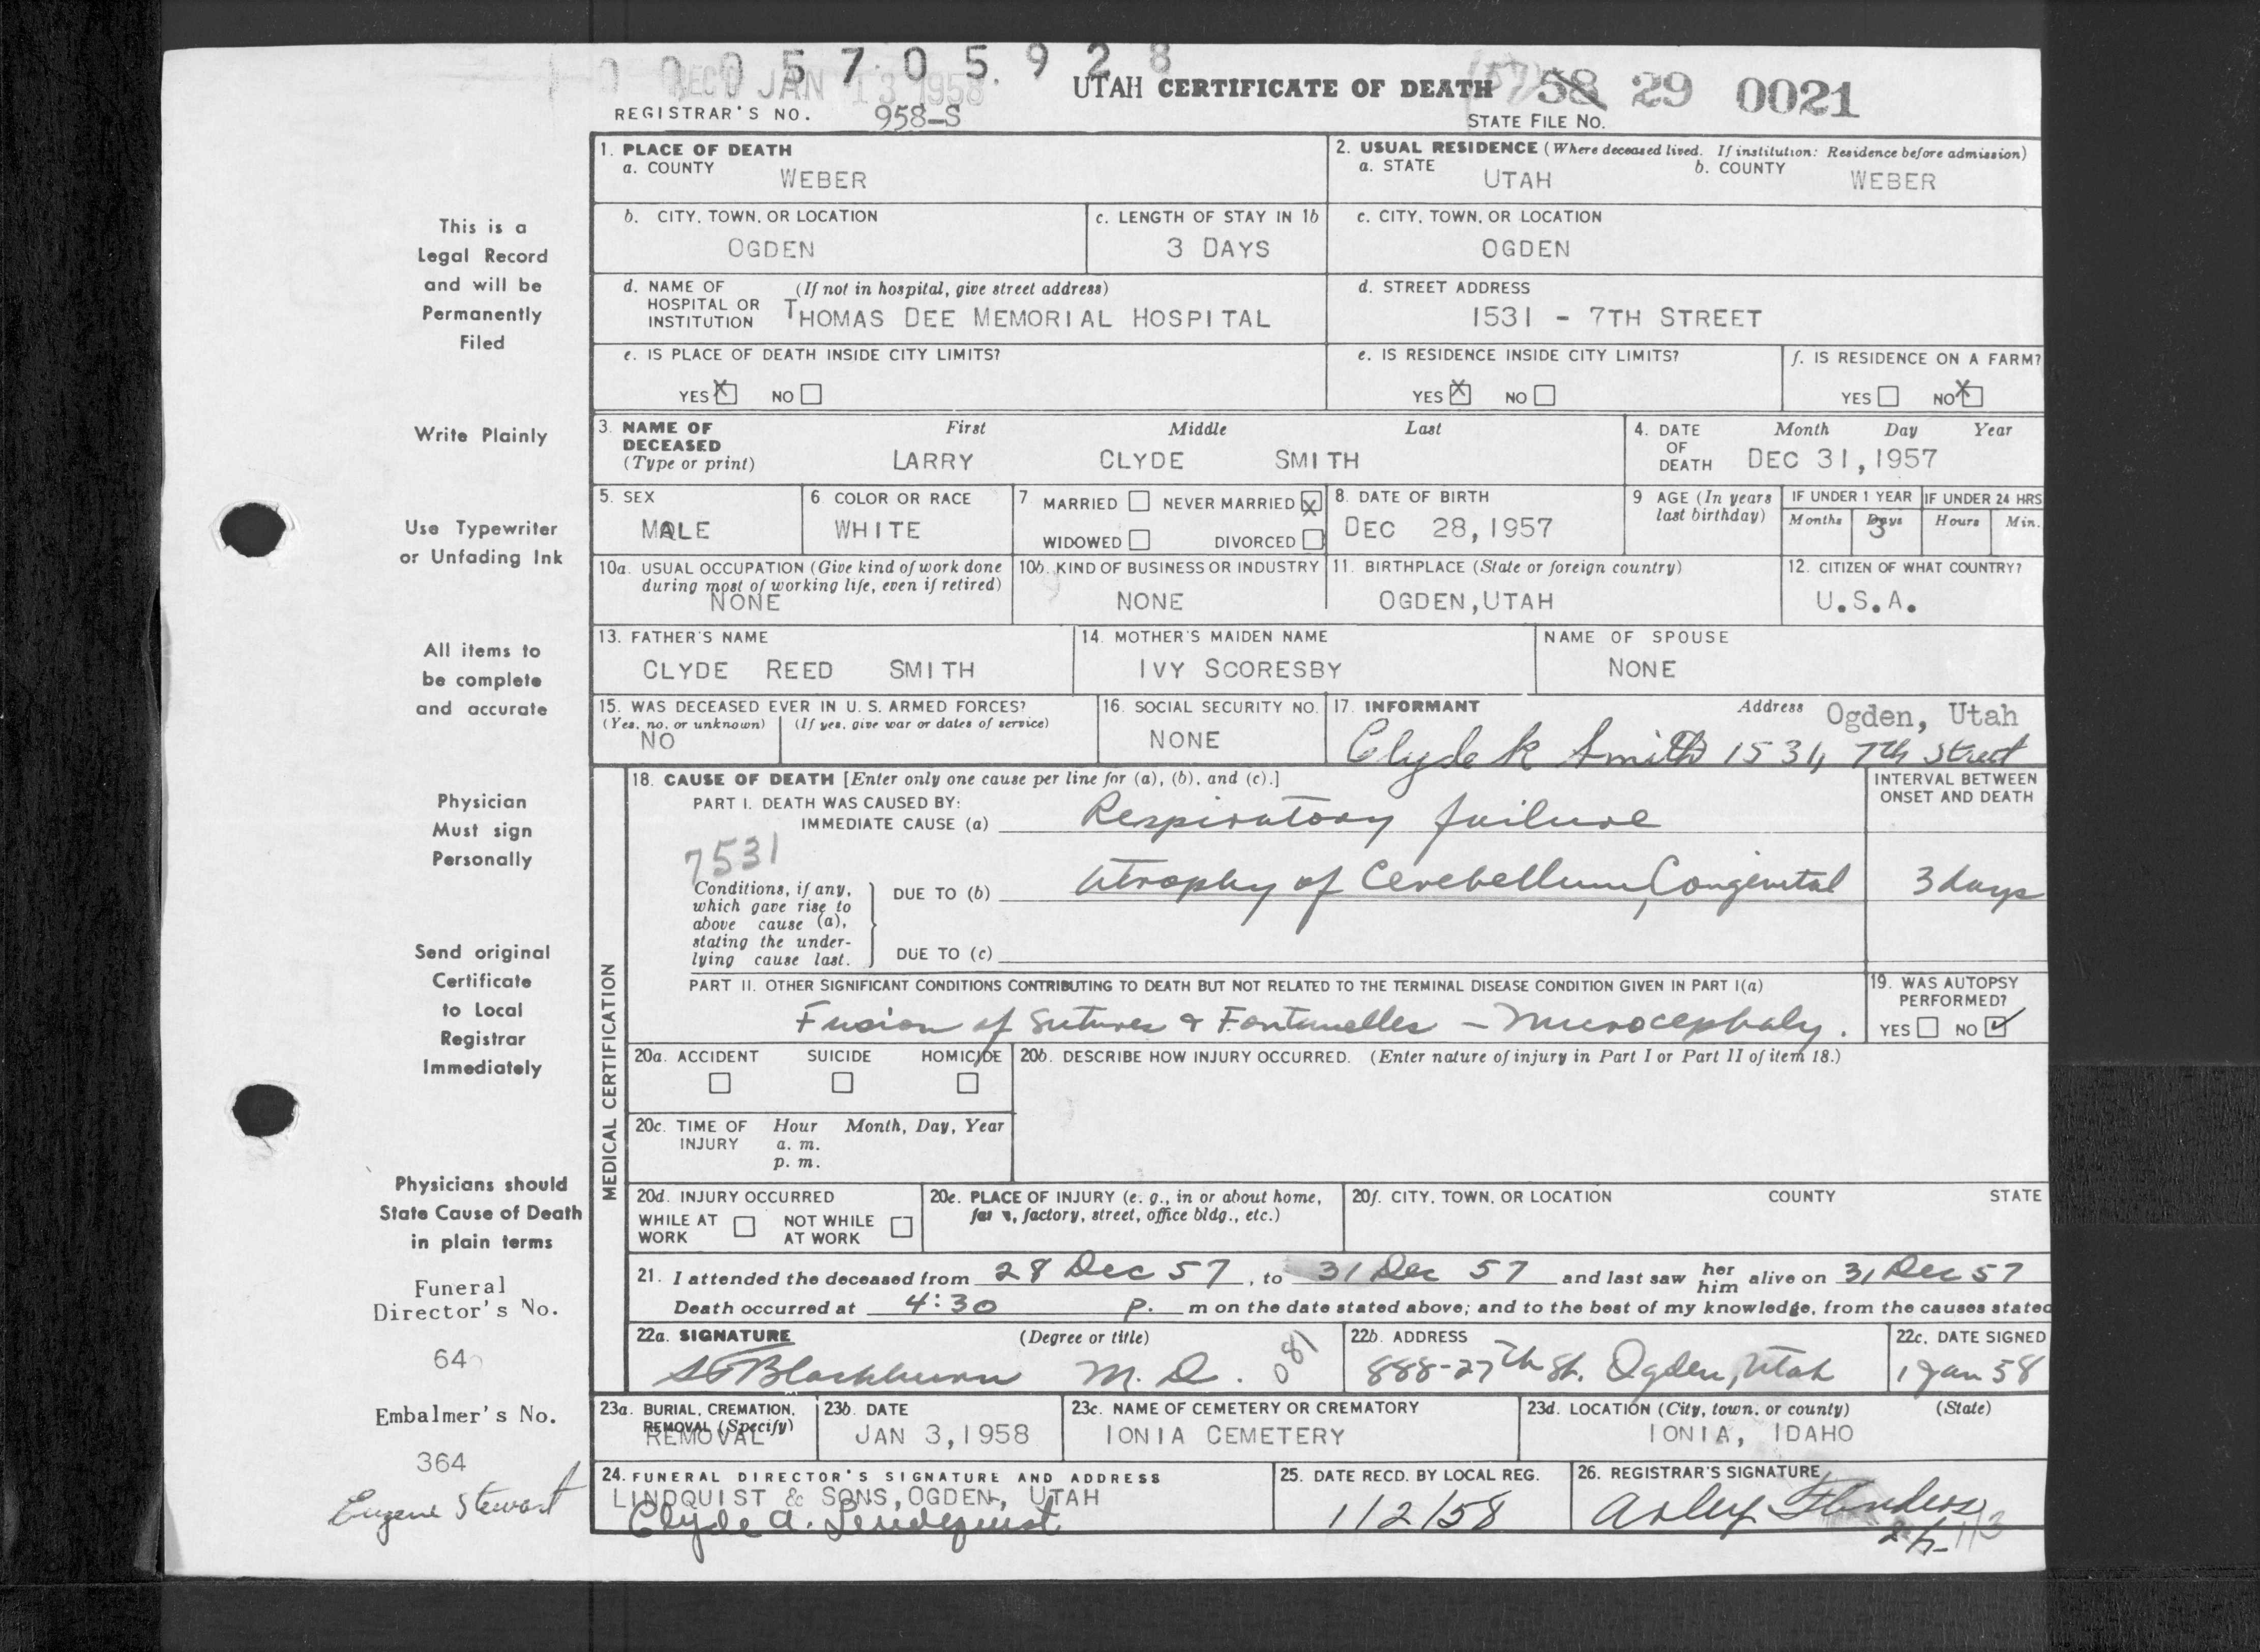 0 0 0 5 7 0 5 9 2 8
REC'D JAN 13 1958
UTAH CERTIFICATE OF DEATH (57) 58 29 0021
REGISTRAR'S NO. 958-S STATE FILE NO.
This is a
Legal Record
and will be
Permanently
Filed
Write Plainly
Use Typewriter
or Unfading Ink
All items to
be complete
and accurate
Physician
Must sign
Personally
Send original
Certificate
to Local
Registrar
Immediately
Physicians should
State Cause of Death
in plain terms
Funeral
Director's No.
640
Embalmer's No.
364
Eugene Stewart
1. PLACE OF DEATH
a. COUNTY WEBER
2. USUAL RESIDENCE (Where deceased lived. If institution: Residence before admission)
a. STATE UTAH b. COUNTY WEBER
b. CITY, TOWN, OR LOCATION OGDEN
c. LENGTH OF STAY IN 1b 3 DAYS
c. CITY, TOWN, OR LOCATION OGDEN
d. NAME OF HOSPITAL OR INSTITUTION (If not in hospital, give street address) THOMAS DEE MEMORIAL HOSPITAL
d. STREET ADDRESS 1531 - 7TH STREET
e. IS PLACE OF DEATH INSIDE CITY LIMITS?
YES X NO
e. IS RESIDENCE INSIDE CITY LIMITS?
YES X NO
f. IS RESIDENCE ON A FARM?
YES NO X
3. NAME OF DECEASED (Type or print) First Middle Last
LARRY CLYDE SMITH
4. DATE OF DEATH Month Day Year
DEC 31, 1957
5. SEX MALE
6. COLOR OR RACE WHITE
7. MARRIED NEVER MARRIED X
WIDOWED DIVORCED
8. DATE OF BIRTH DEC 28, 1957
9 AGE (In years last birthday)
IF UNDER 1 YEAR Months Days 3
IF UNDER 24 HRS Hours Min.
10a. USUAL OCCUPATION (Give kind of work done during most of working life, even if retired) NONE
10b. KIND OF BUSINESS OR INDUSTRY NONE
11. BIRTHPLACE (State or foreign country) OGDEN, UTAH
12. CITIZEN OF WHAT COUNTRY? U.S.A.
13. FATHER'S NAME CLYDE REED SMITH
14. MOTHER'S MAIDEN NAME IVY SCORESBY
NAME OF SPOUSE NONE
15. WAS DECEASED EVER IN U. S. ARMED FORCES?
(Yes, no, or unknown) (If yes, give war or dates of service)
NO
16. SOCIAL SECURITY NO. NONE
17. INFORMANT Address Ogden, Utah
Clyde R Smith 1531, 7th Street
MEDICAL CERTIFICATION
18. CAUSE OF DEATH [Enter only one cause per line for (a), (b), and (c).]
INTERVAL BETWEEN ONSET AND DEATH
PART I. DEATH WAS CAUSED BY:
IMMEDIATE CAUSE (a) Respiratory failure
7531
Conditions, if any, which gave rise to above cause (a), stating the underlying cause last.
DUE TO (b) Atrophy of Cerebellum, Congenital 3 days
DUE TO (c)
PART II. OTHER SIGNIFICANT CONDITIONS CONTRIBUTING TO DEATH BUT NOT RELATED TO THE TERMINAL DISEASE CONDITION GIVEN IN PART I(a)
Fusion of Sutures & Fontanelles - Microcephaly.
19. WAS AUTOPSY PERFORMED?
YES NO ✓
20a. ACCIDENT SUICIDE HOMICIDE
20b. DESCRIBE HOW INJURY OCCURRED. (Enter nature of injury in Part I or Part II of item 18.)
20c. TIME OF INJURY Hour a. m. p. m. Month, Day, Year
20d. INJURY OCCURRED
WHILE AT WORK NOT WHILE AT WORK
20e. PLACE OF INJURY (e. g., in or about home, farm, factory, street, office bldg., etc.)
20f. CITY, TOWN, OR LOCATION COUNTY STATE
21. I attended the deceased from 28 Dec 57, to 31 Dec 57 and last saw her him alive on 31 Dec 57
Death occurred at 4:30 P. m on the date stated above; and to the best of my knowledge, from the causes stated
22a. SIGNATURE (Degree or title)
Blackburn M. D. 081
22b. ADDRESS 888-27th St. Ogden, Utah
22c. DATE SIGNED 1 Jan 58
23a. BURIAL, CREMATION, REMOVAL (Specify) REMOVAL
23b. DATE JAN 3, 1958
23c. NAME OF CEMETERY OR CREMATORY IONIA CEMETERY
23d. LOCATION (City, town, or county) (State) IONIA, IDAHO
24. FUNERAL DIRECTOR'S SIGNATURE AND ADDRESS
LINDQUIST & SONS, OGDEN, UTAH
Clyde A. Lindquist
25. DATE RECD. BY LOCAL REG. 1/2/58
26. REGISTRAR'S SIGNATURE
Arley Flinders